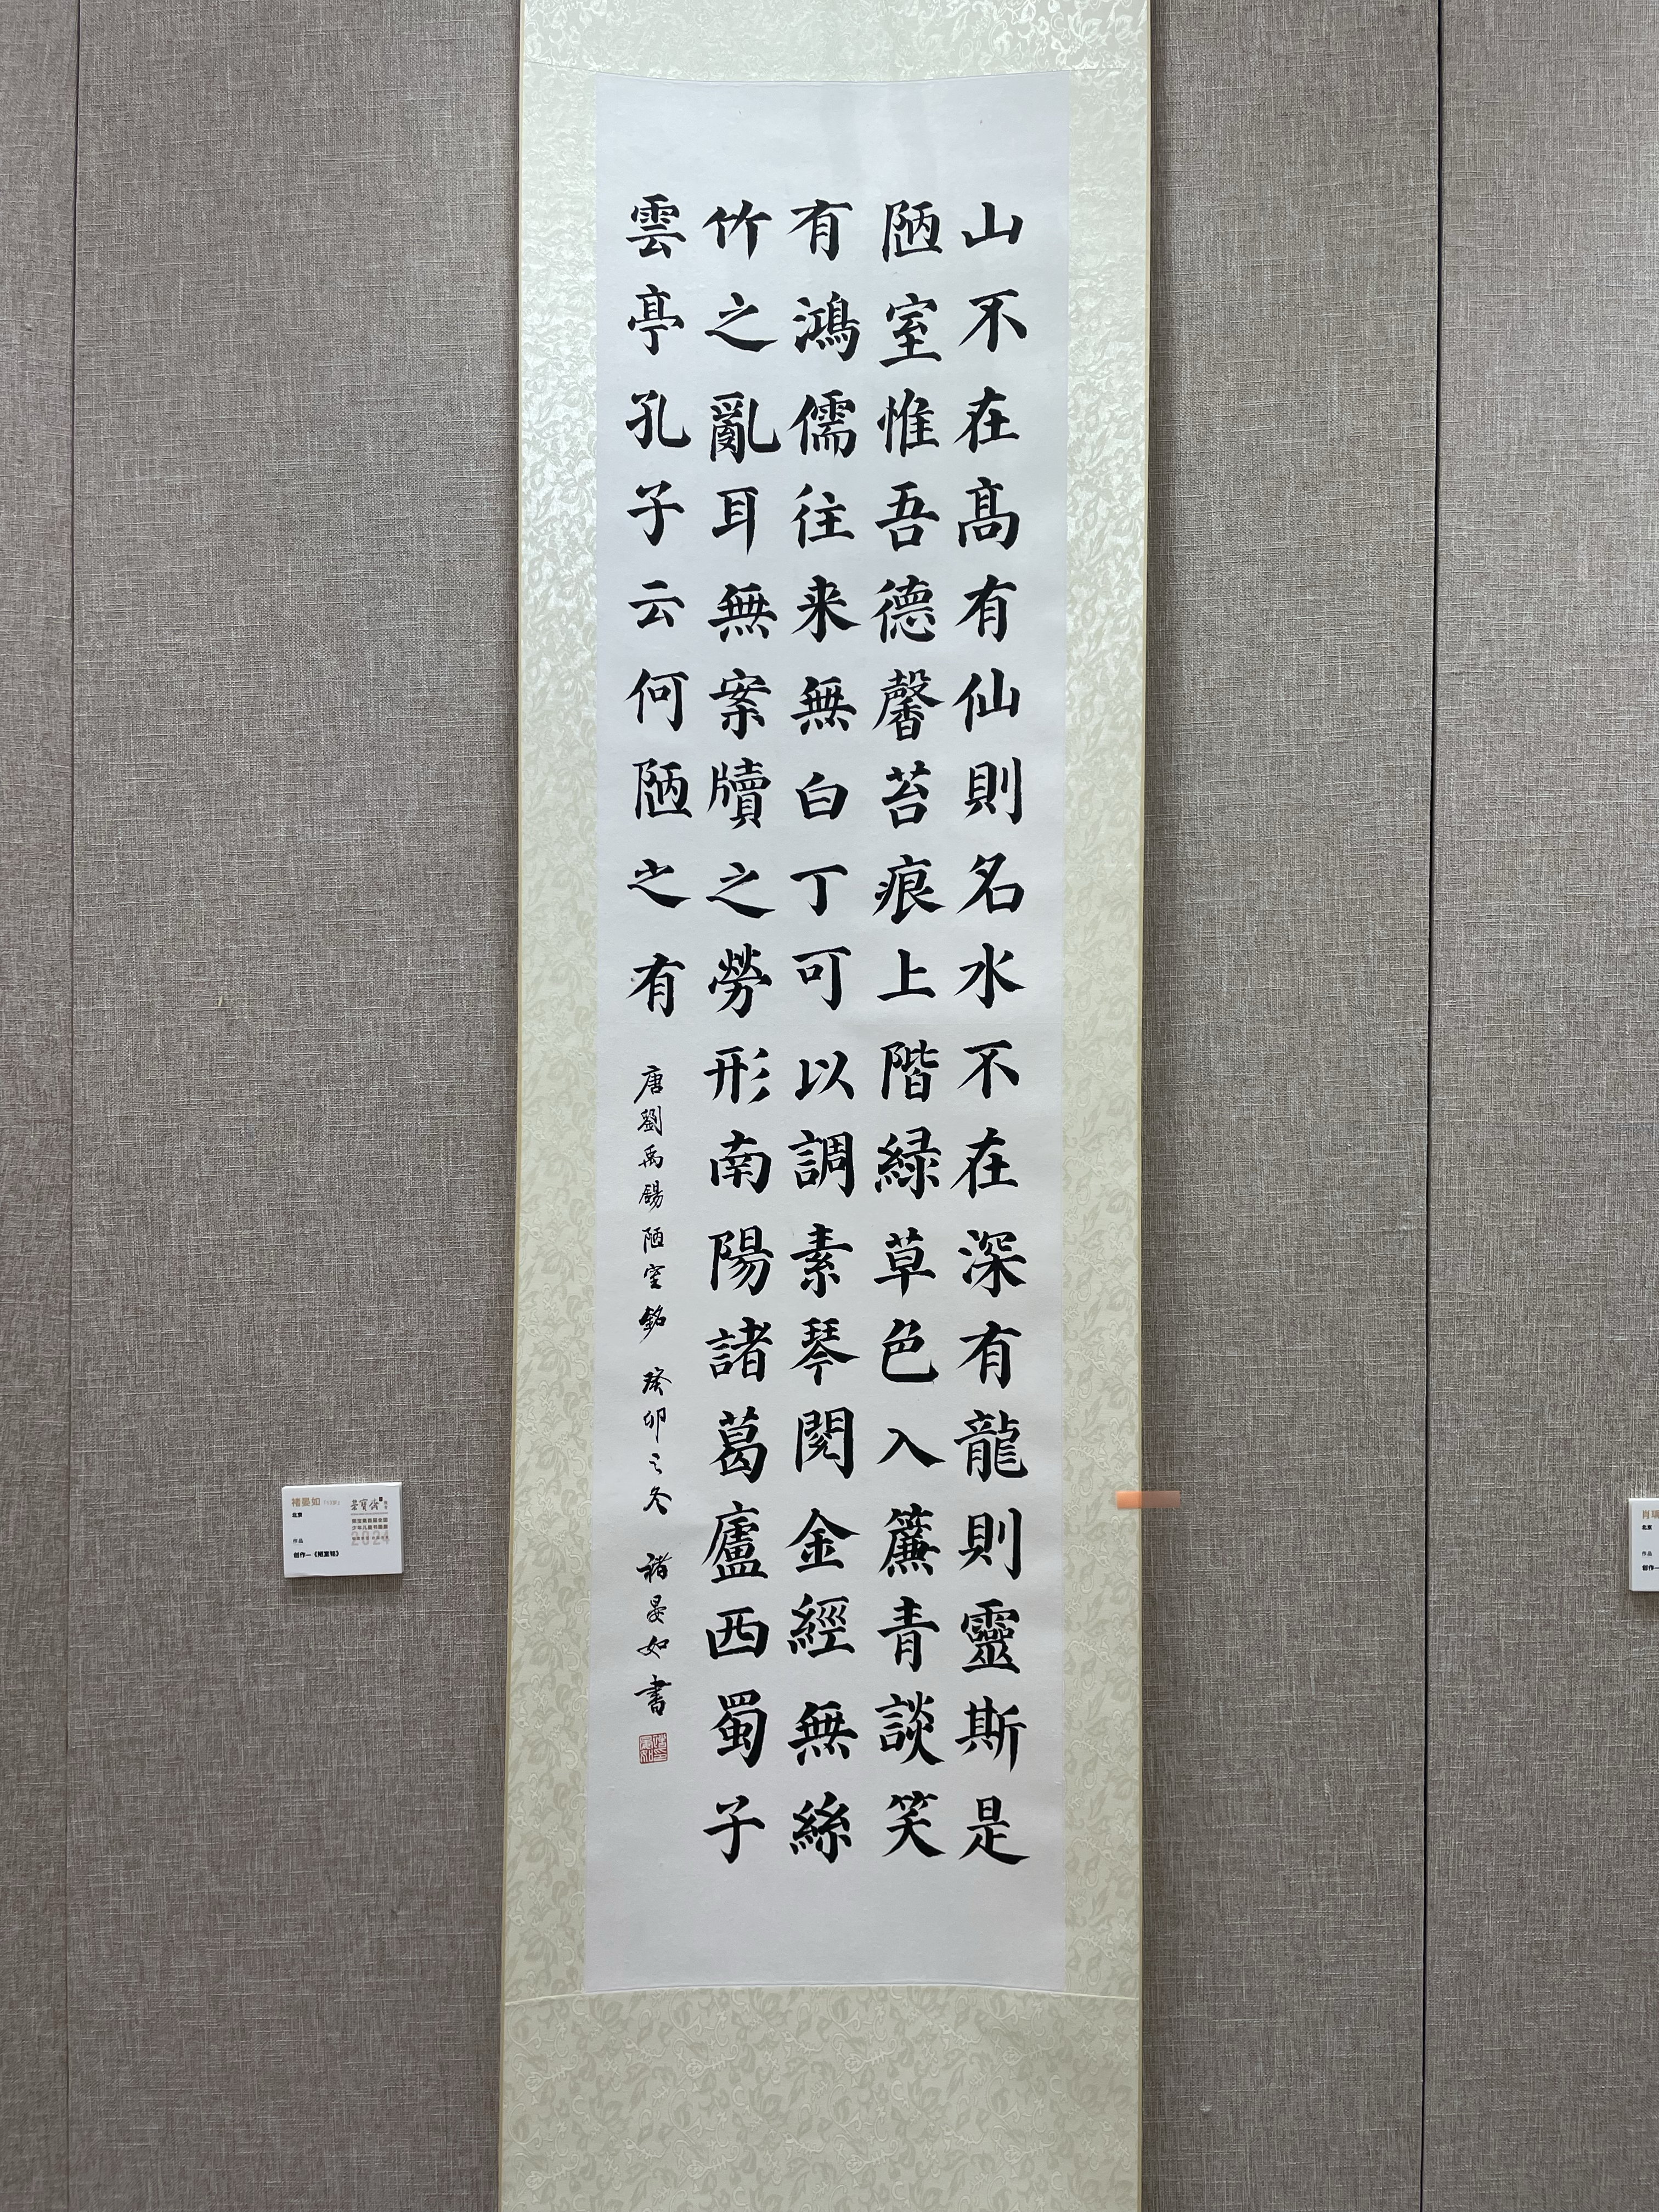 山不在高有仙則名水不在深有龍則靈斯是
陋室惟吾德馨苔痕上階緑草色入簾青談笑
有鴻儒往来無白丁可以調素琴閱金經無絲
竹之亂耳無案牘之勞形南陽諸葛廬西蜀子
雲亭孔子云何陋之有
唐劉禹錫陋室銘 癸卯之冬 褚晏如書
褚晏如
北京
作品
创作—《陋室铭》
荣宝斋
2024
肖
北京
作品
创作—